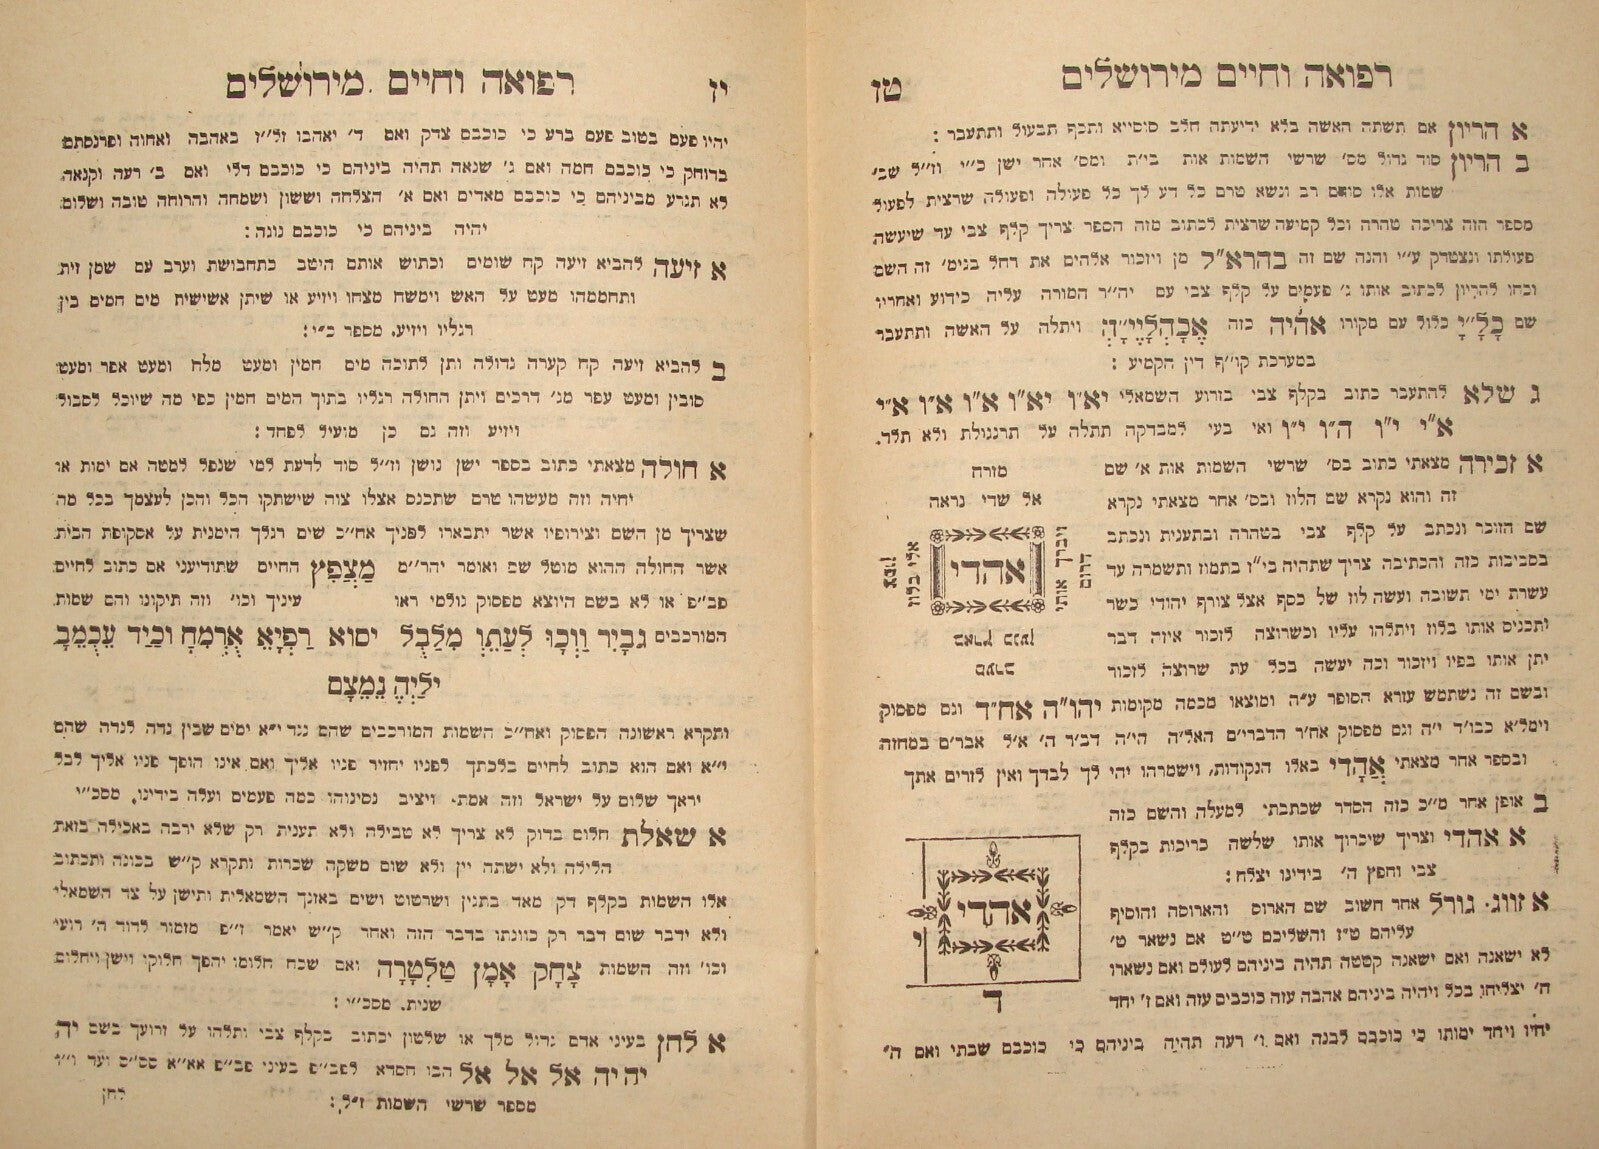 רפואה וחיים מירושלים
טז
א הריון אם תשתה האשה בלא ידיעתה חלב סוסייא ותכף תבעול ותתעבר :
ב הריון סוד גדול מס׳ שרשי השמות אות בי״ת ומס׳ אחר ישן כ״י וז״ל שב׳
שמות אלו סודם רב ונשא טרם כל דע לך כל פעולה ופעולה שרצית לפעול
מספר הזה צריכה טהרה וכל קמיעה שרצית לכתוב מזה הספר צריך קלף צבי עד שיעשה
פעולתו ונצטדק ע״י והנה שם זה בהרא״ל מן ויזכור אלהים את רחל בגימ׳ זה השם
ובחו להריון לכתוב אותו ג׳ פעמים על קלף צבי עם יה״ר המורה עליה כידוע ואחריו
שם כָלָ״י כלול עם מקורו אהיה כזה אֶכָהְלָיֶיָ״הְ ויתלה על האשה ותתעבר
במערכת קו״ף דין הקמיע :
ג שלא להתעבר כתוב בקלף צבי בזרוע השמאלי יא״ו יא״ו א״ו א״ו א״י
א״י י״ו ה״ו י״ו ואי בעי למבדקה תתלה על תרנגולת ולא תלד.
א זכירה מצאתי כתוב בס׳ שרשי השמות אות א׳ שם
זה והוא נקרא שם הלוז ובס׳ אחר מצאתי נקרא
שם הזוכר ונכתב על קלף צבי בטהרה ובתענית ונכתב
בסביבות כזה והכתיבה צריך שתהיה בי״ז בתמוז ותשמרה עד
עשרת ימי תשובה ועשה לוז של כסף אצל צורף יהודי כשר
ותכניס אותו בלוז ויתלהו עליו וכשרוצה לזכור איזה דבר
יתן אותו בפיו ויזכור וכה יעשה בכל עת שרוצה לזכור
מזרח
אל שדי נראה
דרום
ויברך אותי
אהדי
אלי בלוז
צפון
בארץ כנען
מערב
ובשם זה נשתמש עזרא הסופר ע״ה ומוצאו מכמה מקומות יהו״ה אח״ד וגם מפסוק
וימל״א כבו״ד י״ה וגם מפסוק אח״ר הדברי״ם האל״ה הי״ה דב״ר ה׳ א״ל אבר״ם במחזה
ובספר אחר מצאתי אֲהָדִי באלו הנקודות, וישמרהו יהי לך לבדך ואין לזרים אתך
ב אופן אחר מ״כ כזה הסדר שכתבתי למעלה והשם כזה
א אהדי וצריך שיכרוך אותו שלשה כריכות בקלף
צבי וחפץ ה׳ בידינו יצלח :
אהדי
י
ד
א זווג. גורל אחר חשוב שם הארוס והארוסה והוסיף
עליהם ט״ז והשליכם ט״ט אם נשאר ט׳
לא ישאנה ואם ישאנה קטטה תהיה ביניהם לעולם ואם נשארו
ה׳ יצליחו בכל ויהיה ביניהם אהבה עזה כוכבים עזה ואם ז׳ יחד
יחיו ויחד ימותו כי כוכבם לבנה ואם ו׳ רעה תהיה ביניהם כי כוכבם שבתי ואם ה׳
רפואה וחיים מירושלים
יז
יהיו פעם בטוב פעם ברע כי כוכבם צדק ואם ד׳ יאהבו זל״ז באהבה ואחוה ופרנסתם
בדוחק כי כוכבם חמה ואם ג׳ שנאה תהיה ביניהם כי כוכבם דלי ואם ב׳ רעה וקנאה
לא תגרע מביניהם כי כוכבם מאדים ואם א׳ הצלחה וששון ושמחה והרוחה טובה ושלום
יהיה ביניהם כי כוכבם נוגה :
א זיעה להביא זיעה קח שומים וכתוש אותם היטב כתחבושת וערב עם שמן זית
ותחממהו מעט על האש וימשח מצחו ויזיע או שיתן אשישית מים חמים בין
רגליו ויזיע. מספר כ״י :
ב להביא זיעה קח קערה גדולה ותן לתוכה מים חמין ומעט מלח ומעט אפר ומעט
סובין ומעט עפר מג׳ דרכים ויתן החולה רגליו בתוך המים חמין כפי מה שיוכל לסבול
ויזיע וזה גם כן מועיל לפחד :
א חולה מצאתי כתוב בספר ישן נושן וז״ל סוד לדעת למי שנפל למטה אם ימות או
יחיה וזה מעשהו טרם שתכנס אצלו צוה שישתקו הכל והכן לעצמך בכל מה
שצריך מן השם וצירופיו אשר יתבארו לפניך אח״כ שים רגלך הימנית על אסקופת הבית
אשר החולה ההוא מוטל שם ואומר יהר״מ מַצְפַץ החיים שתודיעני אם כתוב לחיים
פב״פ או לא בשם היוצא מפסוק גולמי ראו עיניך וכו׳ וזה תיקונו והם שמות
המורכבים גבָיִר וַוְכָוּ לְעַתֵוְ מִלַבֻל יסוא רַפְיָאֵ אֻרְמִחָ וכַיַד עֻכְמֵבָ
ילַיְהֶ נֵמֵצָם
ותקרא ראשונה הפסוק ואח״כ השמות המורכבים שהם נגד י״א ימים שבין נדה לנדה שהם
י״א ואם הוא כתוב לחיים בלכתך לפניו יחזיר פניו אליך ואם אינו הופך פניו אליך לבל
יראך שלום על ישראל וזה אמת. ויציב נסינוהו כמה פעמים ועלה בידינו. מסכ״י
א שאלת חלום בדוק לא צריך לא טבילה ולא תענית רק שלא ירבה באכילה בזאת
הלילה ולא ישתה יין ולא שום משקה שכרות ותקרא ק״ש בכונה ותכתוב
אלו השמות בקלף דק מאד בתגין ושרטוט ושים באזנך השמאלית ותישן על צד השמאלי
ולא ידבר שום דבר רק כוונתו בדבר הזה ואחר ק״ש יאמר ז״פ מזמור לדוד ה׳ רועי
וכו׳ וזה השמות צָחָק אָמָן טַלְטָרָה ואם שכח חלומו יהפך חלוקו וישן ויחלום
שנית. מסכ״י :
א לחן בעיני אדם גדול מלך או שלטון יכתוב בקלף צבי ותלהו על זרועך בשם יה
יהיה אל אל אל הבו חסדא לפב״פ בעיני פב״פ אא״א סס״ס ועד ו״ו
מספר שרשי השמות ז״ל :
לחן